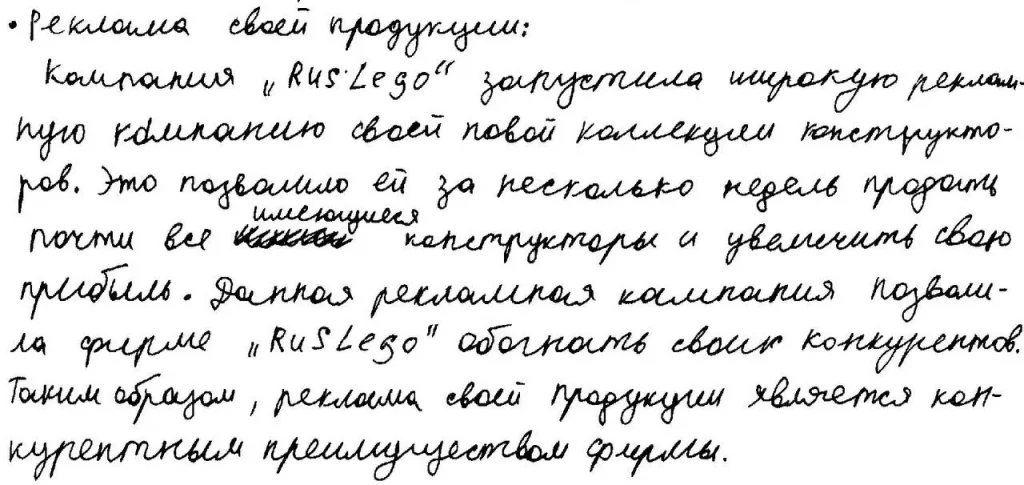 • Реклама своей продукции:
Компания „RusLego“ запустила широкую реклам-
ную компанию своей новой коллекции конструкто-
ров. Это позволило ей за несколько недель продать
почти все имеющиеся конструкторы и увеличить свою
прибыль. Данная рекламная кампания позволи-
ла фирме „RusLego“ обогнать своих конкурентов.
Таким образом, реклама своей продукции является кон-
курентным преимуществом фирмы.